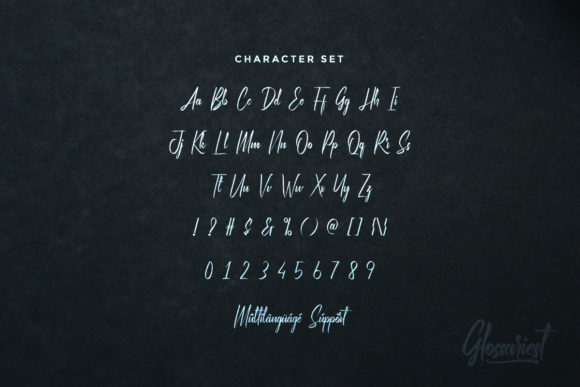 CHARACTER SET
Aa Bb Cc Dd Ee Ff Gg Hh Ii
Jj Kk Ll Mm Nn Oo Pp Qq Rr Ss
Tt Uu Vv Ww Xx Yy Zz
! ? # $ & % ( ) @ [ ] { \ }
0 1 2 3 4 5 6 7 8 9
Múltílängüágé Súppört
Glossariest